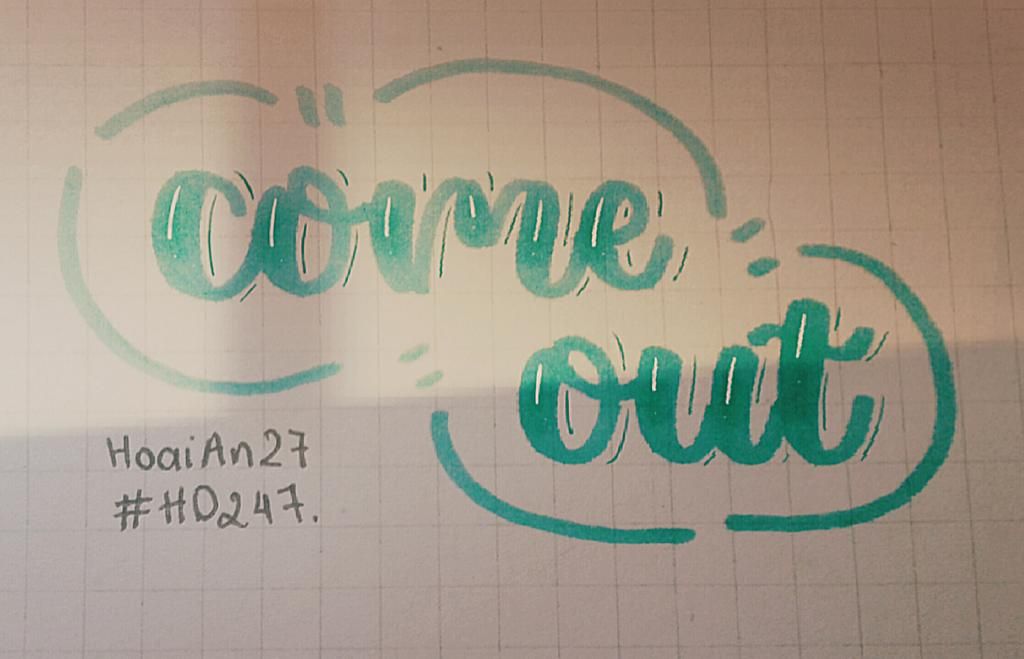 come
out
HoaiAn27
#HD247.